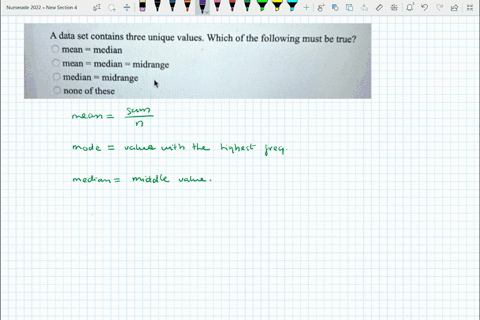 Numerade 2022 » New Section 4
A data set contains three unique values. Which of the following must be true?
mean = median
mean = median = midrange
median = midrange
none of these
mean = sum
n
mode = value with the highest freq.
median = middle value.